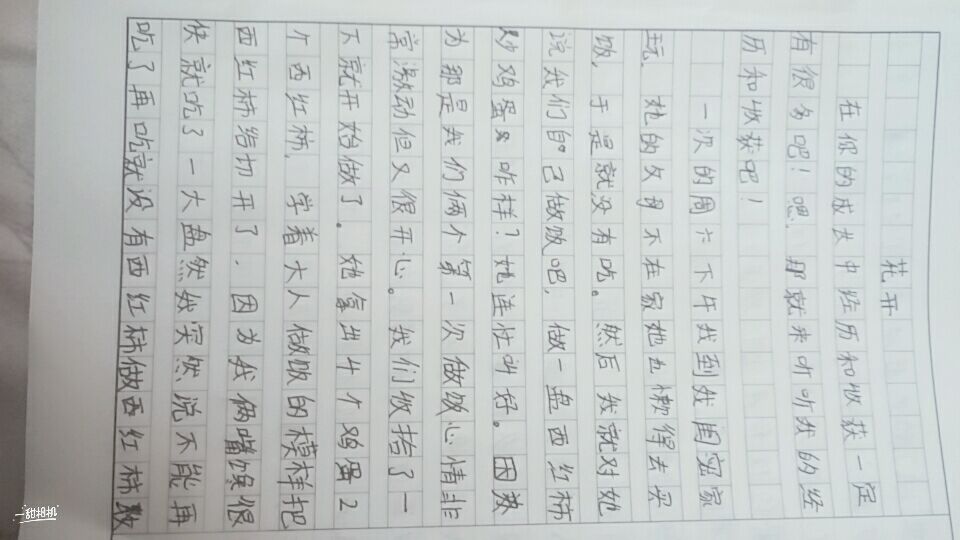 花开
在你的成长中经历和收获一定
有很多吧!嗯,那就来听听我的经
历和收获吧!
一次的周六下午我到我闺密家
玩,她的父母不在家她也懒得去买
饭,于是就没有吃。然后我就对她
说我们自己做饭吧,做一盘西红柿
炒鸡蛋咋样?她连忙叫好。因为
为那是我们俩个第一次做饭心情非
常激动但又很开心。我们收拾了一
下就开始做了。她拿出4个鸡蛋2
个西红柿,学着大人做饭的模样把
西红柿给切开了,因为我俩嘴馋很
快就吃了一大盘然我突然说不能再
吃了再吃就没有西红柿做西红柿
一甜相机